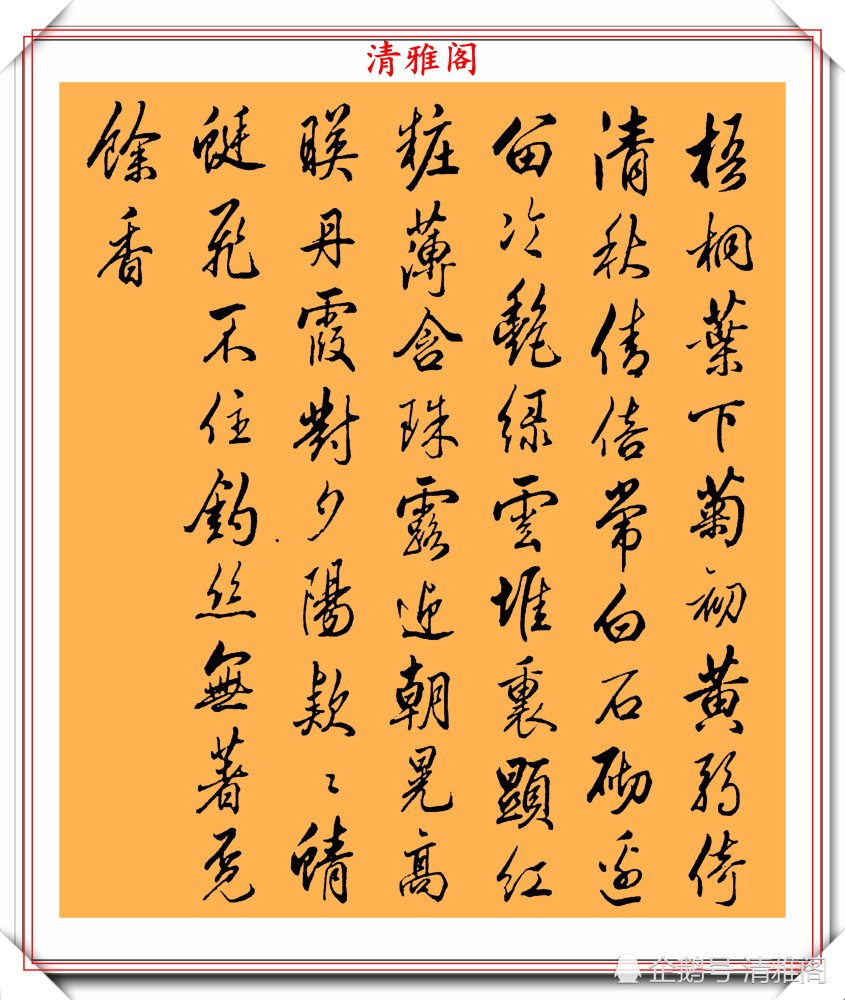 清雅阁
梧桐葉下菊初黄弱倚
清秋倩倍常白石砌邊
留冷艷緑雲堆裏顯红
粧薄含珠露迎朝晃高
暎丹霞對夕陽款〻蜻
蜓飛不住釣丝無著覓
餘香
企鹅号 清雅阁